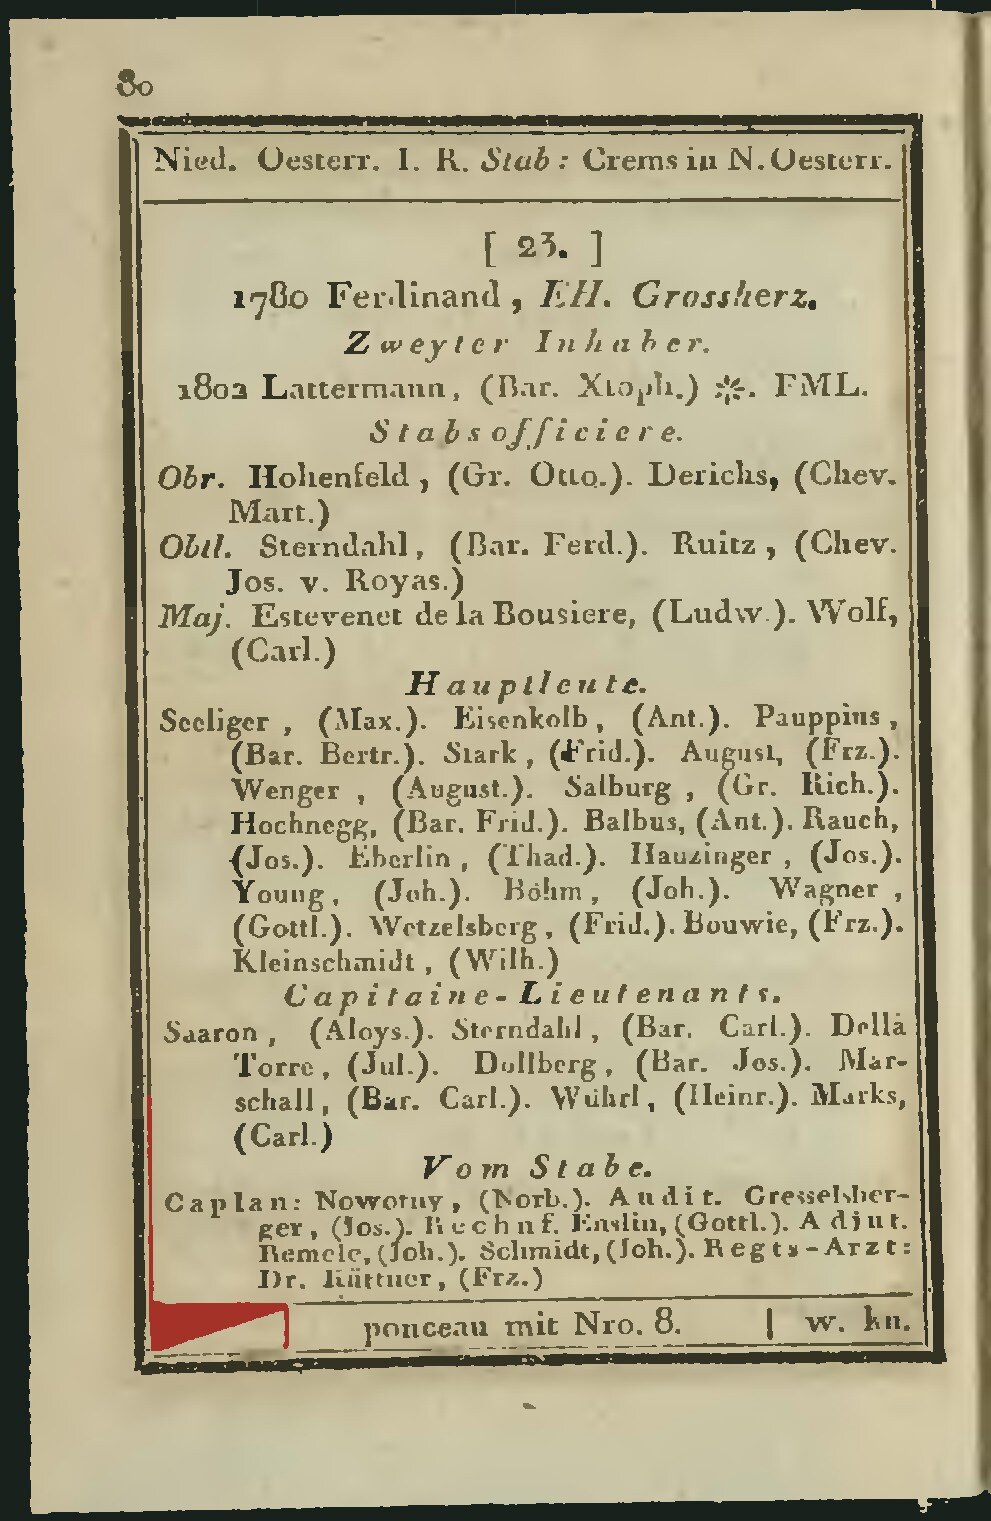 80
Nied. Oesterr. I. R. Stab: Crems in N. Oesterr.
[ 23. ]
1780 Ferdinand, EH. Grossherz.
Zweyter Inhaber.
1802 Lattermann, (Bar. Xtoph.) ※. FML.
Stabsofficiere.
Obr. Hohenfeld, (Gr. Otto.). Derichs, (Chev.
Mart.)
Obtl. Sterndahl, (Bar. Ferd.). Ruitz, (Chev.
Jos. v. Royas.)
Maj. Estevenet de la Bousiere, (Ludw.). Wolf,
(Carl.)
Hauptleute.
Seeliger, (Max.). Eisenkolb, (Ant.). Pauppius,
(Bar. Bertr.). Stark, (Frid.). August, (Frz.).
Wenger, (August.). Salburg, (Gr. Rich.).
Hochnegg, (Bar. Frid.). Balbus, (Ant.). Rauch,
(Jos.). Eberlin, (Thad.). Hauzinger, (Jos.).
Young, (Joh.). Böhm, (Joh.). Wagner,
(Gottl.). Wetzelsberg, (Frid.). Bouwie, (Frz.).
Kleinschmidt, (Wilh.)
Capitaine-Lieutenants.
Saaron, (Aloys.). Sterndahl, (Bar. Carl.). Della
Torre, (Jul.). Dollberg, (Bar. Jos.). Mar-
schall, (Bar. Carl.). Wührl, (Heinr.). Marks,
(Carl.)
Vom Stabe.
Caplan: Nowotny, (Norb.). Audit. Gresselsber-
ger, (Jos.). Rechnf. Enslin, (Gottl.). Adjut.
Remele, (Joh.). Schmidt, (Joh.). Regts-Arzt:
Dr. Rüttner, (Frz.)
ponceau mit Nro. 8. | w. kn.